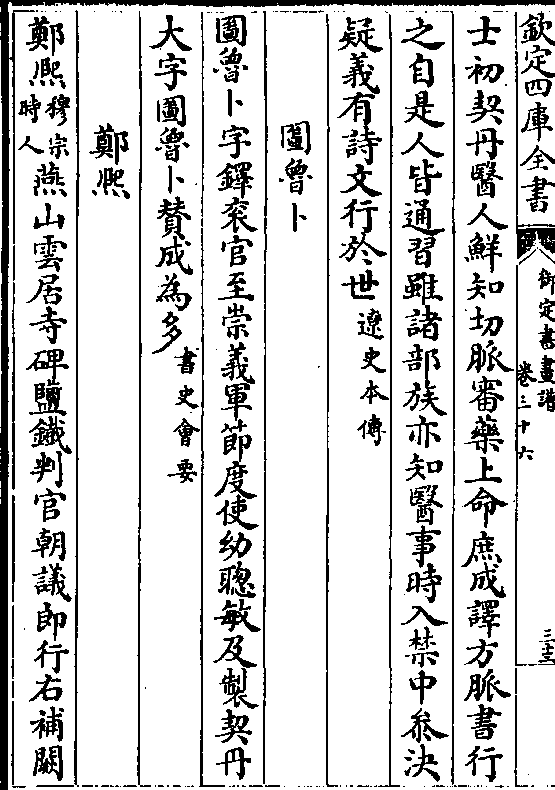 欽定四庫全書
御定書畫譜
卷三十六
士初契丹醫人鮮知切脈審藥上命庶成譯方脈書行
之自是人皆通習雖諸部族亦知醫事時入禁中叅決
疑義有詩文行於世遼史本傳
圖魯卜
圖魯卜字鐸衮官至崇義軍節度使幼聰敏及製契丹
大字圖魯卜賛成為多書史會要
鄭熈
鄭熈穆宗時人燕山雲居寺碑鹽鐵判官朝議郎行右補闕